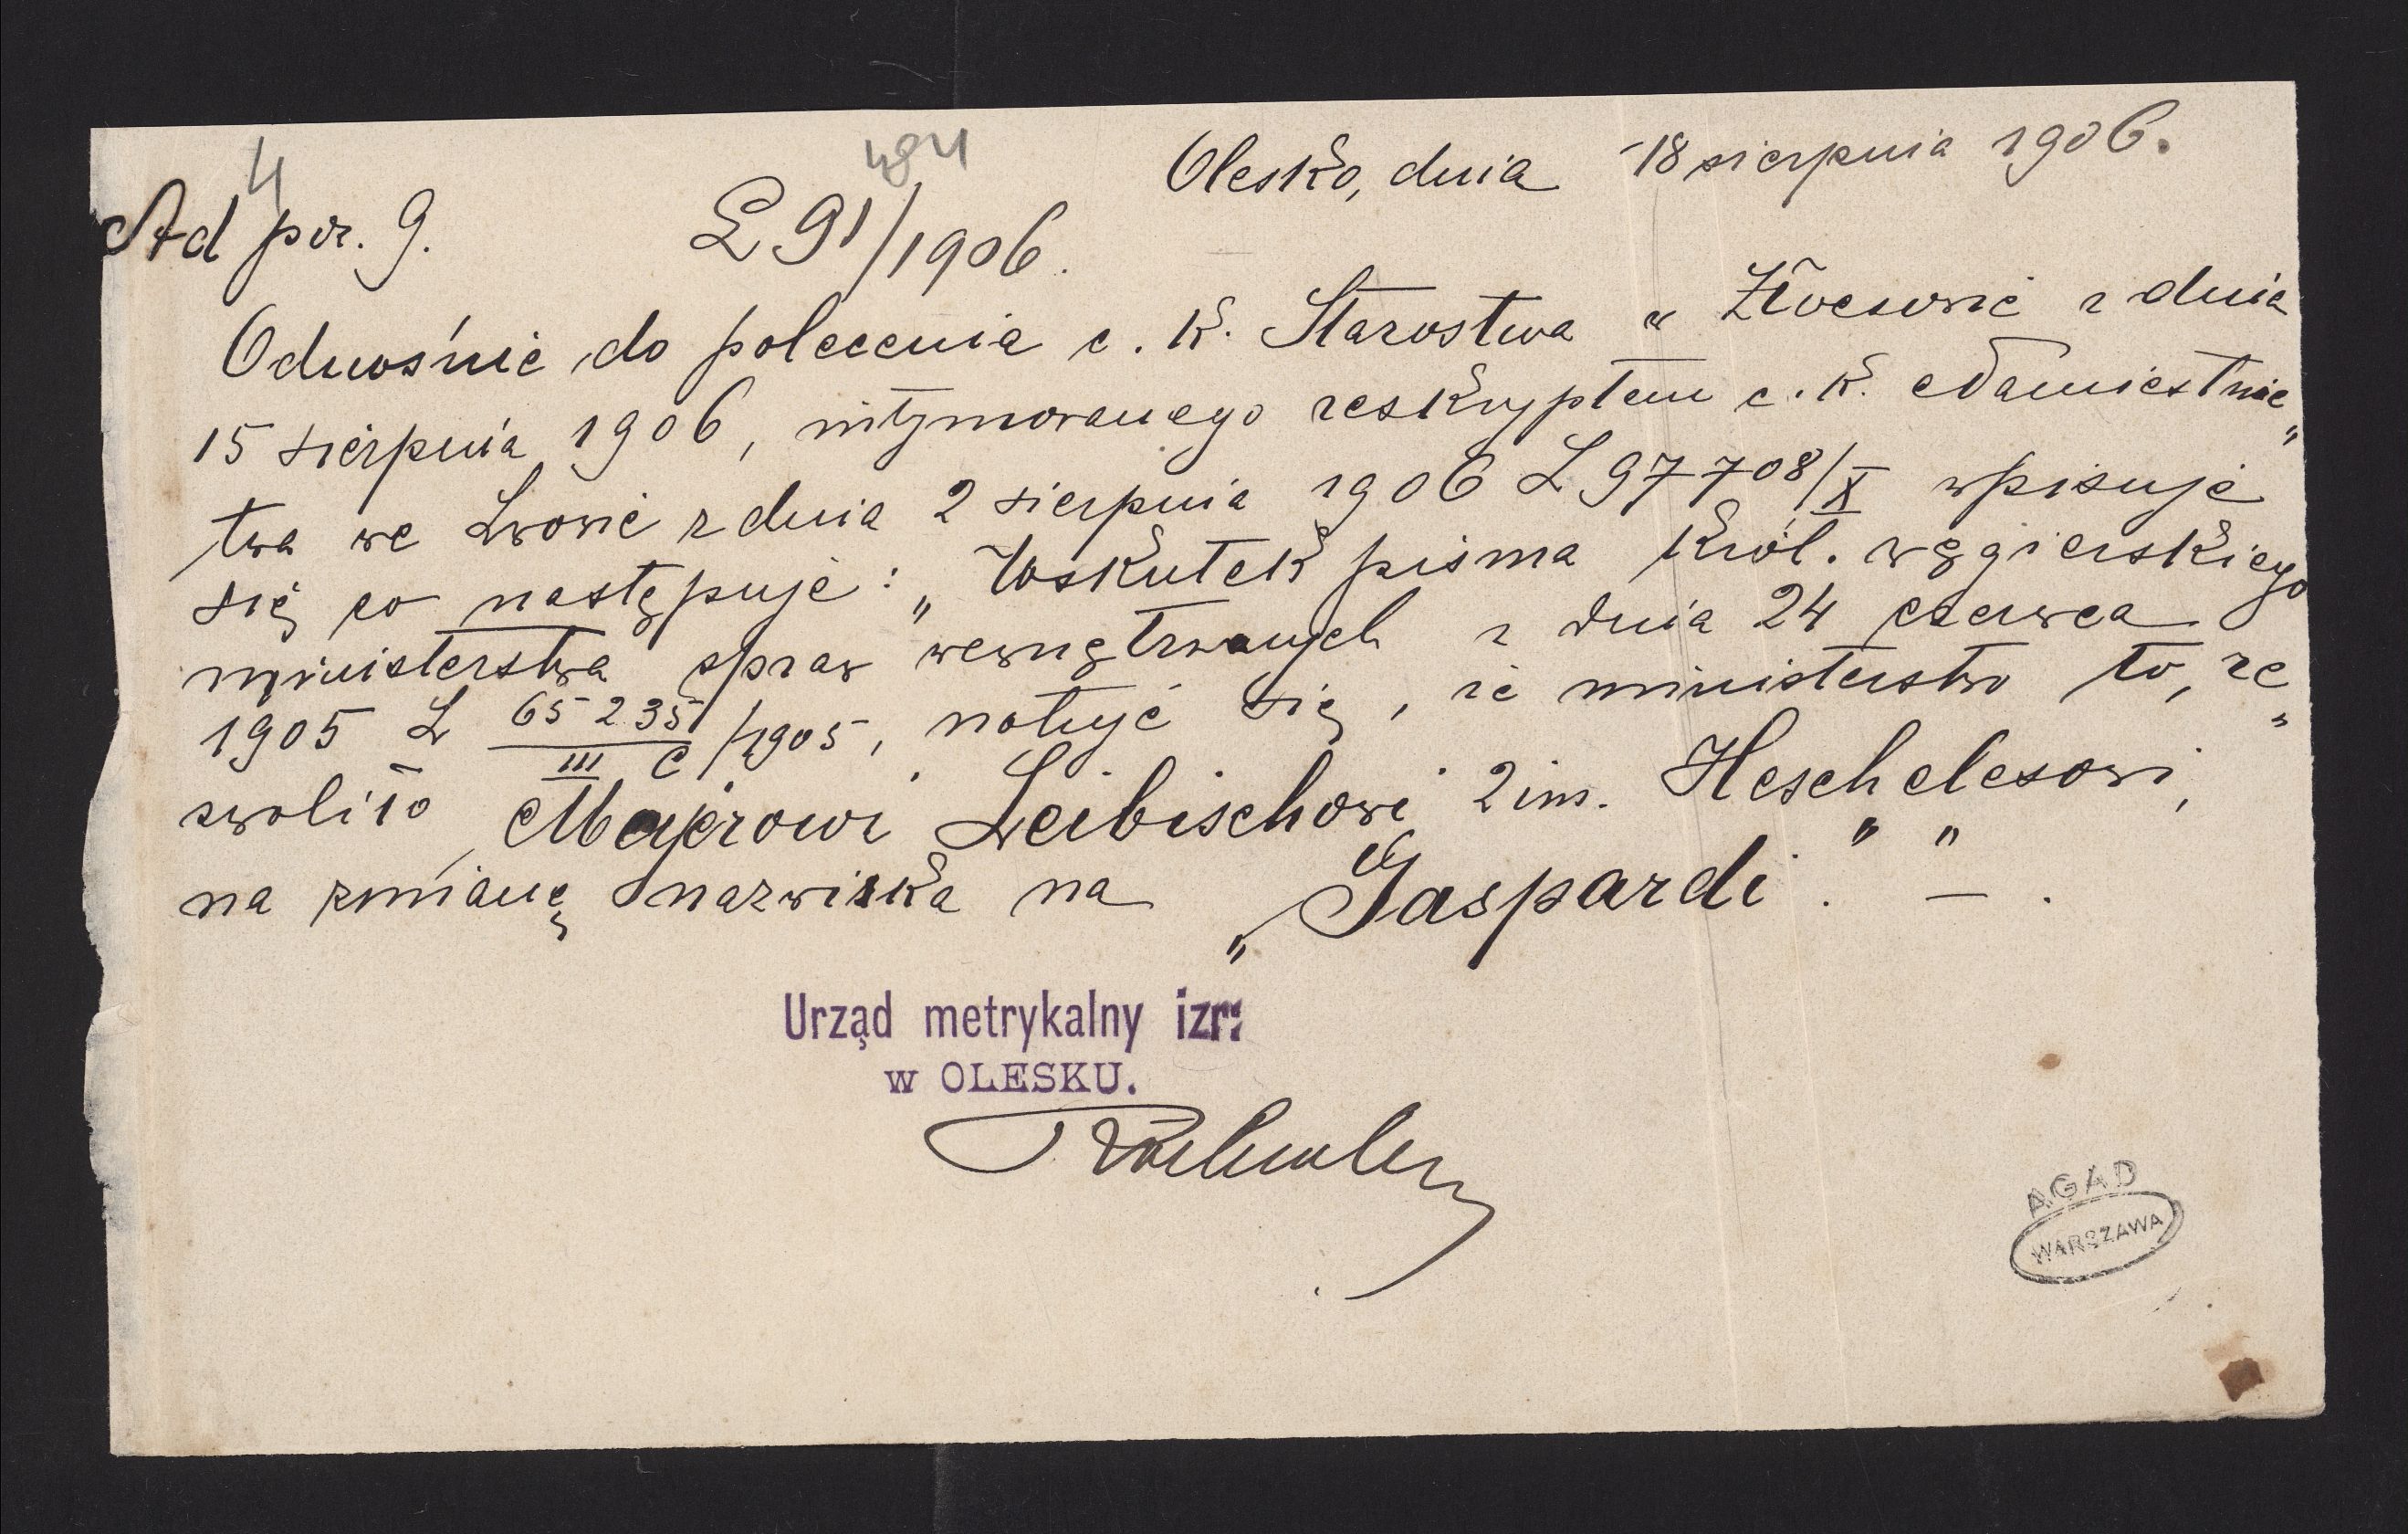 4 484
Olesko, dnia 18 sierpnia 1906.
Ad por. 9. L 91/1906.
Odnośnie do polecenia c. k. Starostwa w Złoczowie z dnia
15 sierpnia 1906, intymowanego reskryptem c. k. Namiestnic„
twa we Lwowie z dnia 2 sierpnia 1906 L 97708/X wpisuje
się co następuje: „Wskutek pisma król. węgierskiego
ministerstwa spraw wewnętrznych z dnia 24 czerwca
1905 L 65235/III C /1905, notuje się, że ministerstwo to, ze„
zwoliło Majerowi Leibischowi 2 im. Heschelesowi,
na zmianę nazwiska na „Gaspardi". " — .
Urząd metrykalny izr:
w OLESKU.
AGAD
WARSZAWA